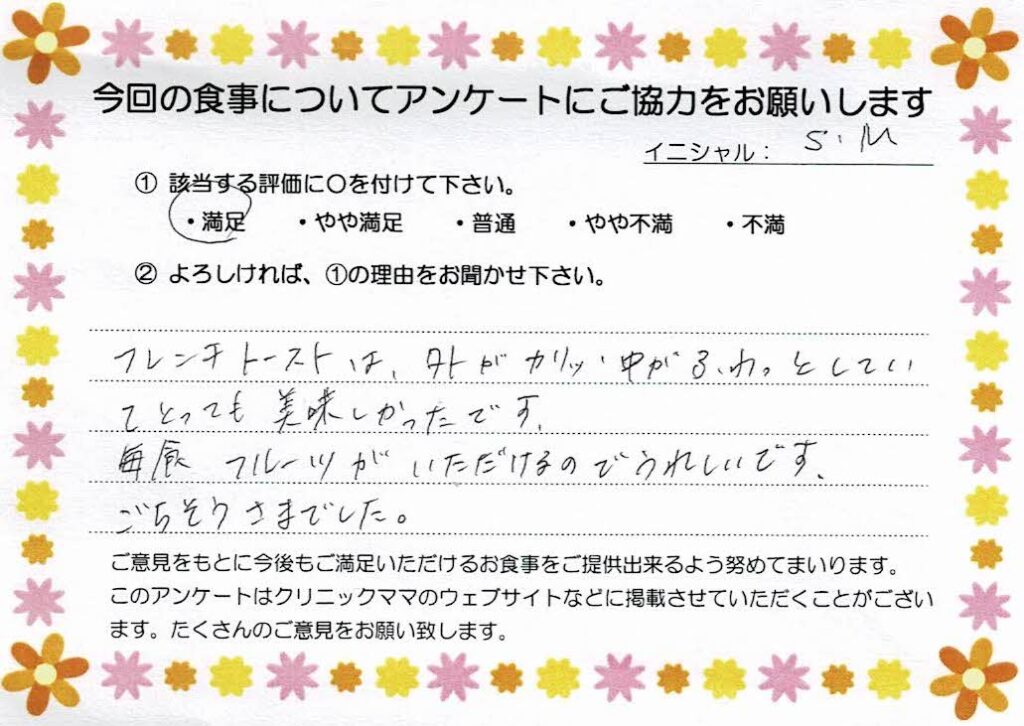 今回の食事についてアンケートにご協力をお願いします
イニシャル： S.M
① 該当する評価に〇を付けて下さい。
・満足 ・やや満足 ・普通 ・やや不満 ・不満
② よろしければ、①の理由をお聞かせ下さい。
フレンチトーストは、外がカリッ、中がふわっとしてい
てとっても美味しかったです。
毎食フルーツがいただけるのでうれしいです。
ごちそうさまでした。
ご意見をもとに今後もご満足いただけるお食事をご提供出来るよう努めてまいります。
このアンケートはクリニックママのウェブサイトなどに掲載させていただくことがござい
ます。たくさんのご意見をお願い致します。